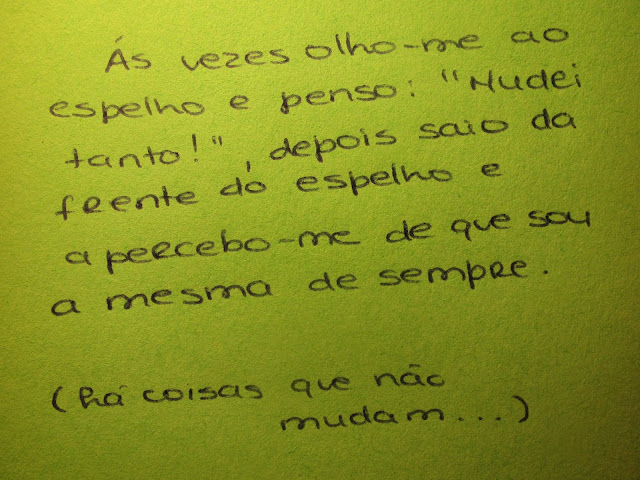 Ás vezes olho-me ao
espelho e penso: "Mudei
tanto!", depois saio da
frente do espelho e
apercebo-me de que sou
a mesma de sempre.
(há coisas que não
mudam...)